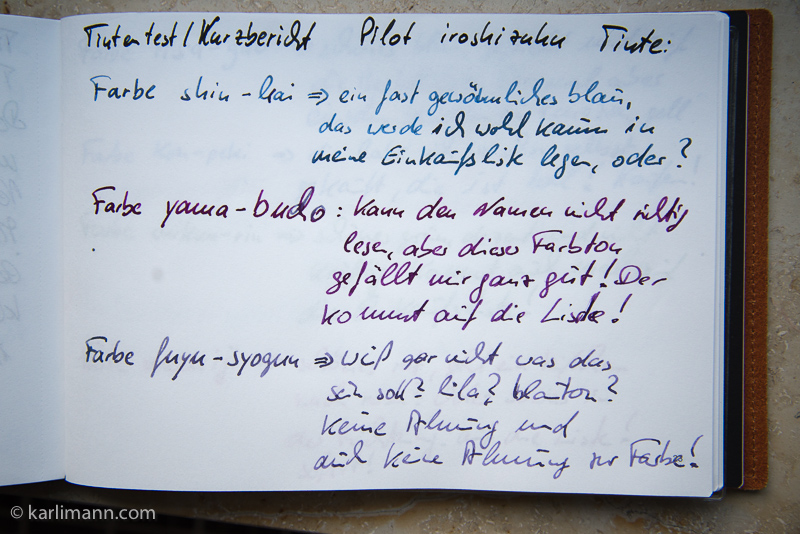 Tintentest/Kurzbericht Pilot iroshizuku Tinte:
Farbe shin-kai => ein fast gewöhnliches blau,
das werde ich wohl kaum in
meine Einkaufsliste legen, oder?
Farbe yama-budo: kann den Namen nicht richtig
lesen, aber dieser Farbton
gefällt mir ganz gut! Der
kommt auf die Liste!
Farbe fuyu-syogun => weiß gar nicht was das
sein soll? lila? blauton?
keine Ahnung und
auch keine Ahnung zur Farbe!
© karlimann.com